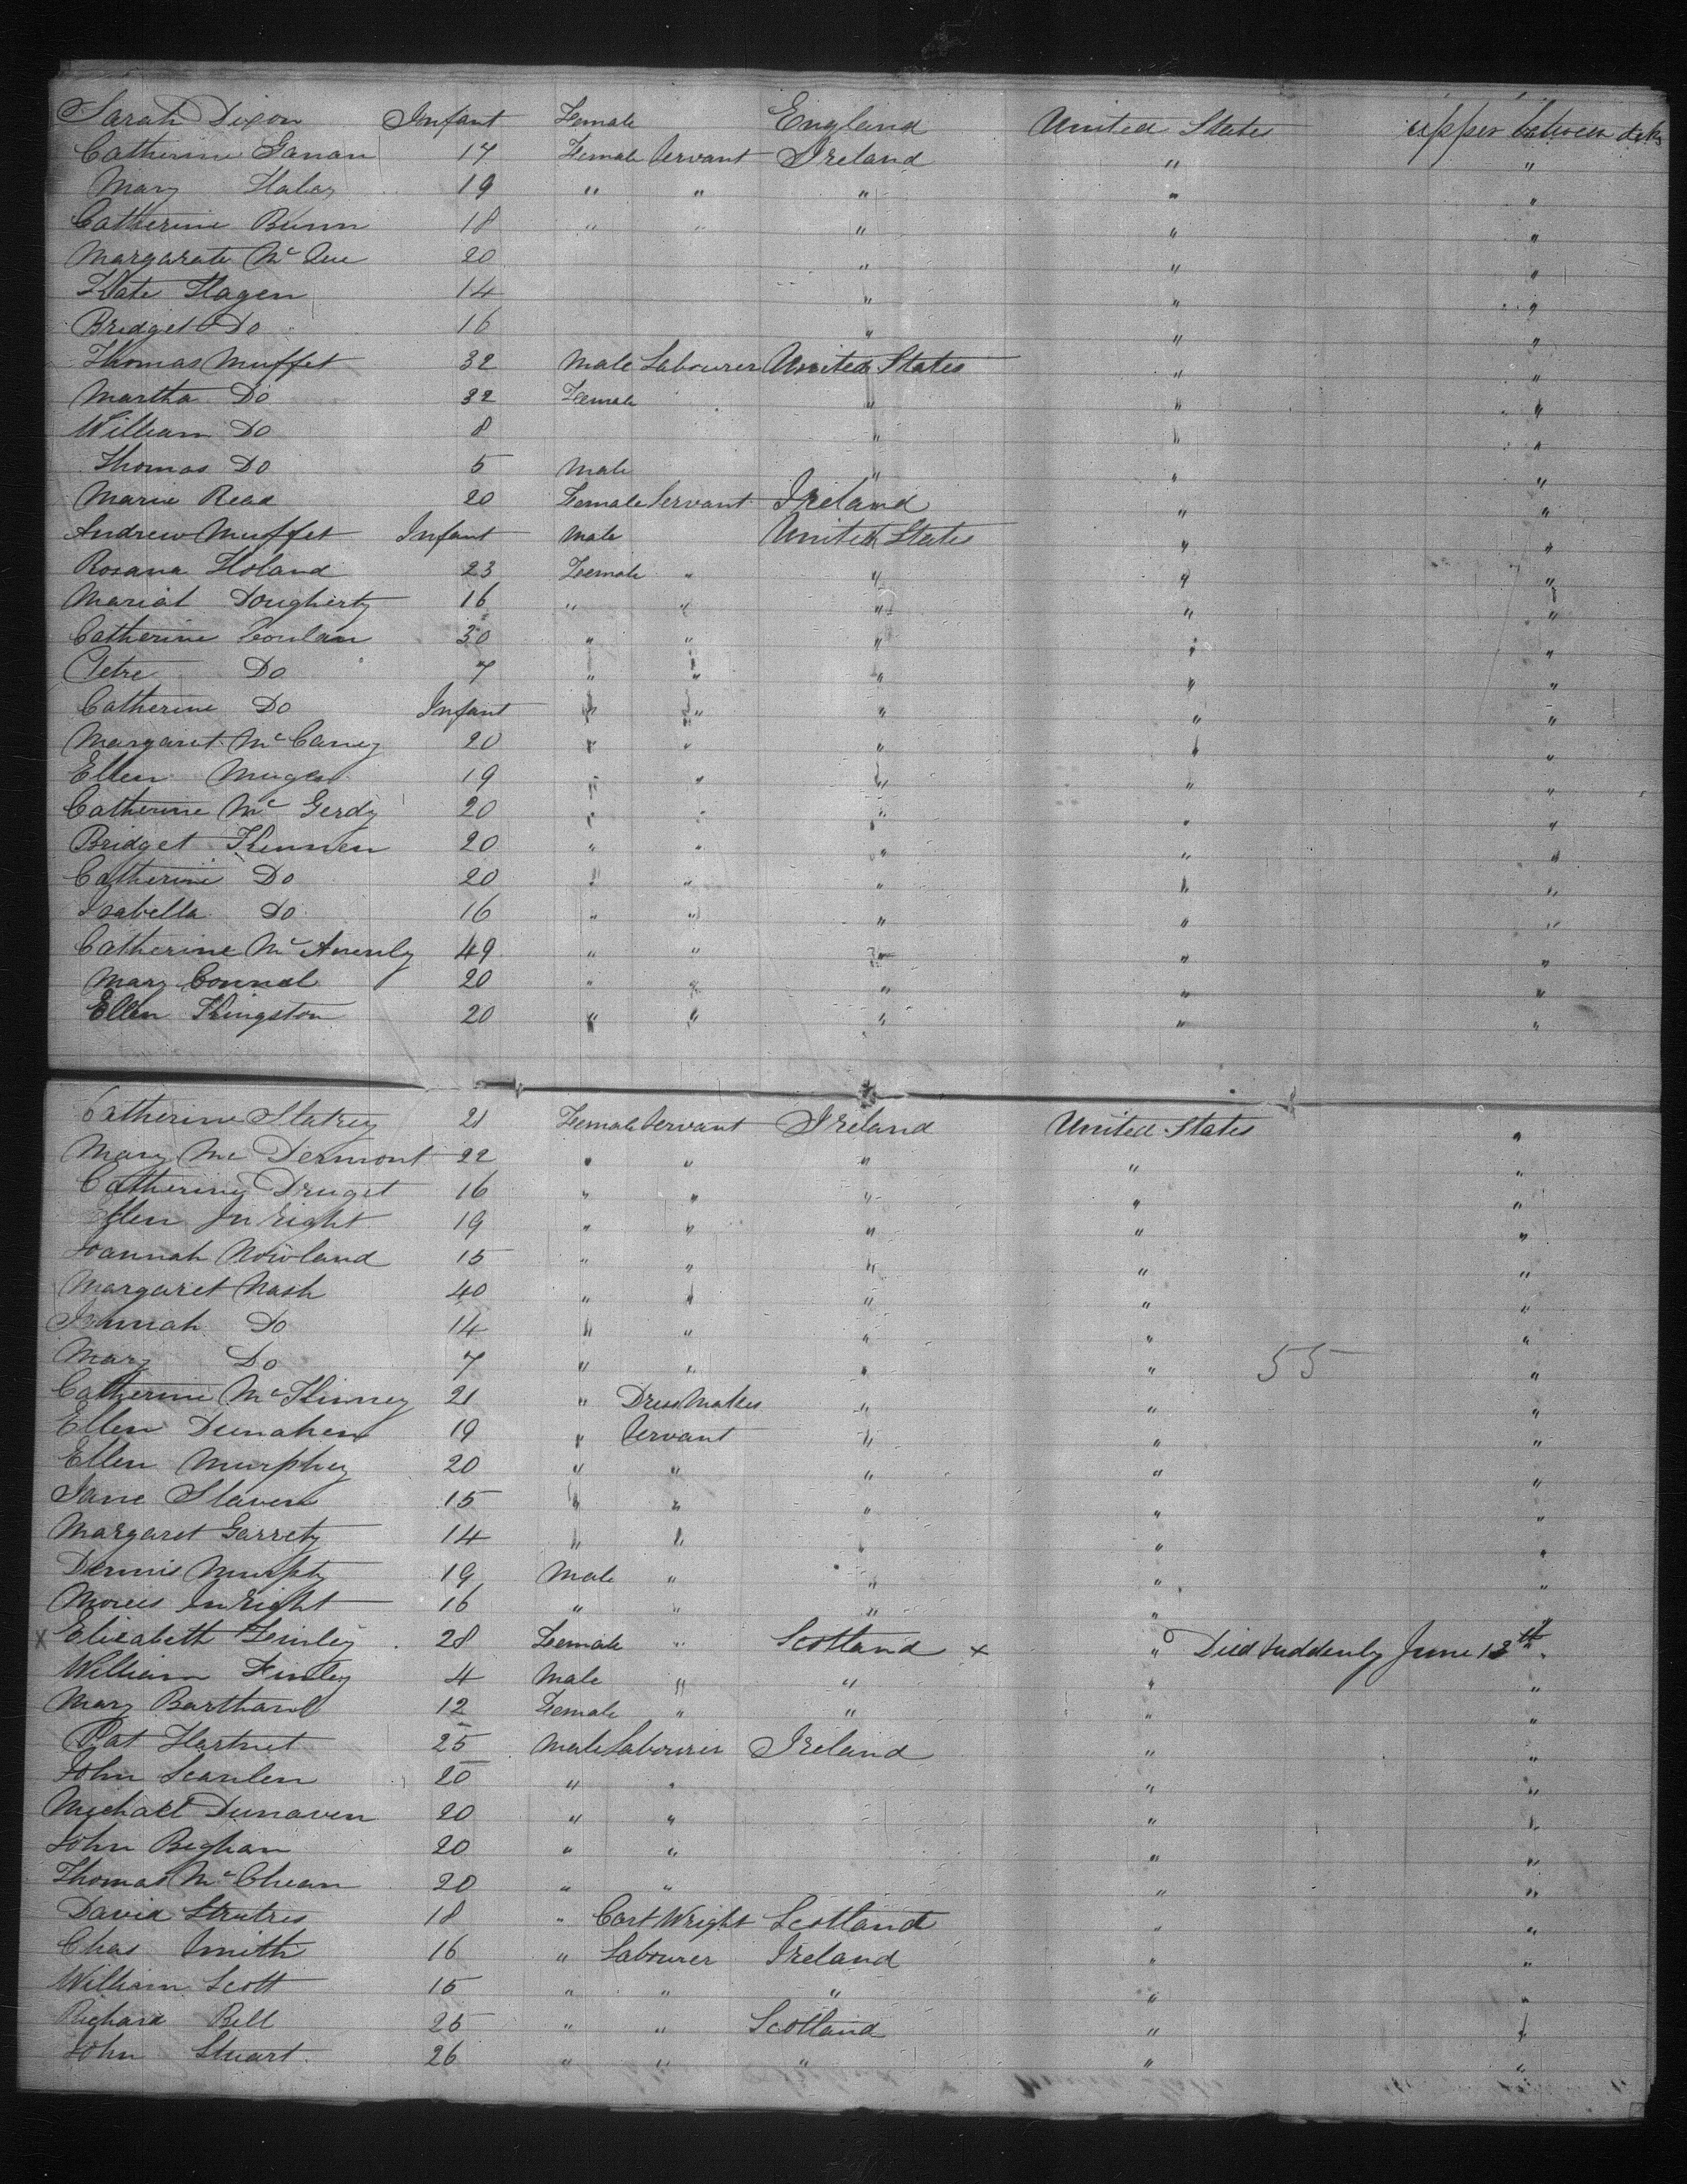 Sarah Dixon Infant Female England United States upper between deks
Catherine Ganan 17 Female Servant Ireland " "
Mary Haley 19 " " " " "
Catherine Bunn 18 " " " " "
Margarate Mc 20 " " "
Kate Hagen 14 " " "
Bridget Do 16 " " "
Thomas Muffet 32 Male Labourer United States " "
Martha Do 32 Female " " "
William Do 8 " " "
Thomas Do 5 Male " " "
Marie Read 20 Female Servant Ireland " "
Andrew Muffet Infant Male United States " "
Rosana Holand 23 Female " " " "
Mariat Dougherty 16 " " " " "
Catherine Conlan 30 " " " " "
Petre Do 7 " " " " "
Catherine Do Infant " " " " "
Margaret McCaney 20 " " " " "
Ellen 19 " " " " "
Catherine Mc Gerdy 20 " " " " "
Bridget Kennen 20 " " " " "
Catherine Do 20 " " " " "
Isabella Do 16 " " " " "
Catherine Mc 49 " " " " "
Mary Connel 20 " " " " "
Ellen Kingston 20 " " " " "
Catherine Slatrey 21 Female Servant Ireland United States "
Mary Mc Dermont 22 " " " " "
Catherine Druget 16 " " " " "
Ellen InRight 19 " " " " "
Joannah Nowland 15 " " " " "
Margaret Nash 40 " " " " "
Do 14 " " " " "
Mary Do 7 " " " " 55 "
Catherine McKinney 21 " Dress Maker " " "
Ellen Dunahen 19 " Servant " " "
Ellen Murphey 20 " " " " "
Jane Slaven 15 " " " " "
Margaret Garrety 14 " " " " "
Dennis Murphy 19 Male " " " "
Morris InRight 16 " " " " "
x Elizabeth Finley 28 Female " Scotland x " Died suddenly June 13th "
William Finley 4 Male " " " "
Mary Bartham 12 Female " " " "
Pat Hartnet 25 Male Labourer Ireland " "
John Scanlen 20 " " " "
Michael Dunaven 20 " " " "
John Beghan 20 " " " "
Thomas McCluean 20 " " " "
David Strutres 18 " Cart Wright Scotland " "
Chas Smith 16 " Labourer Ireland " "
William Scott 15 " " " " "
Richard Bell 25 " " Scotland " "
John Stuart 26 " " " " "